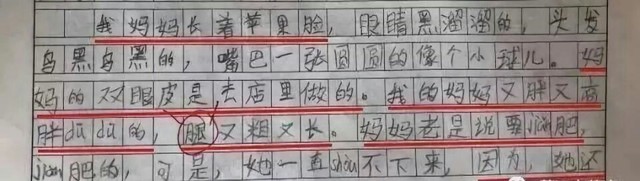 我妈妈长着苹果脸，眼睛黑溜溜的，头发
乌黑乌黑的，嘴巴一张圆圆的像个小球儿。妈
妈的双眼皮是去店里做的。我的妈妈又胖又高
胖dū dū的，腿又粗又长。妈妈老是说要jiǎn肥，
jiǎn肥的，可是，她一直shòu不下来，因为，她还